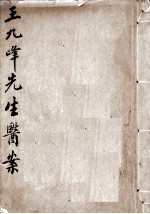 王九峰先生醫案